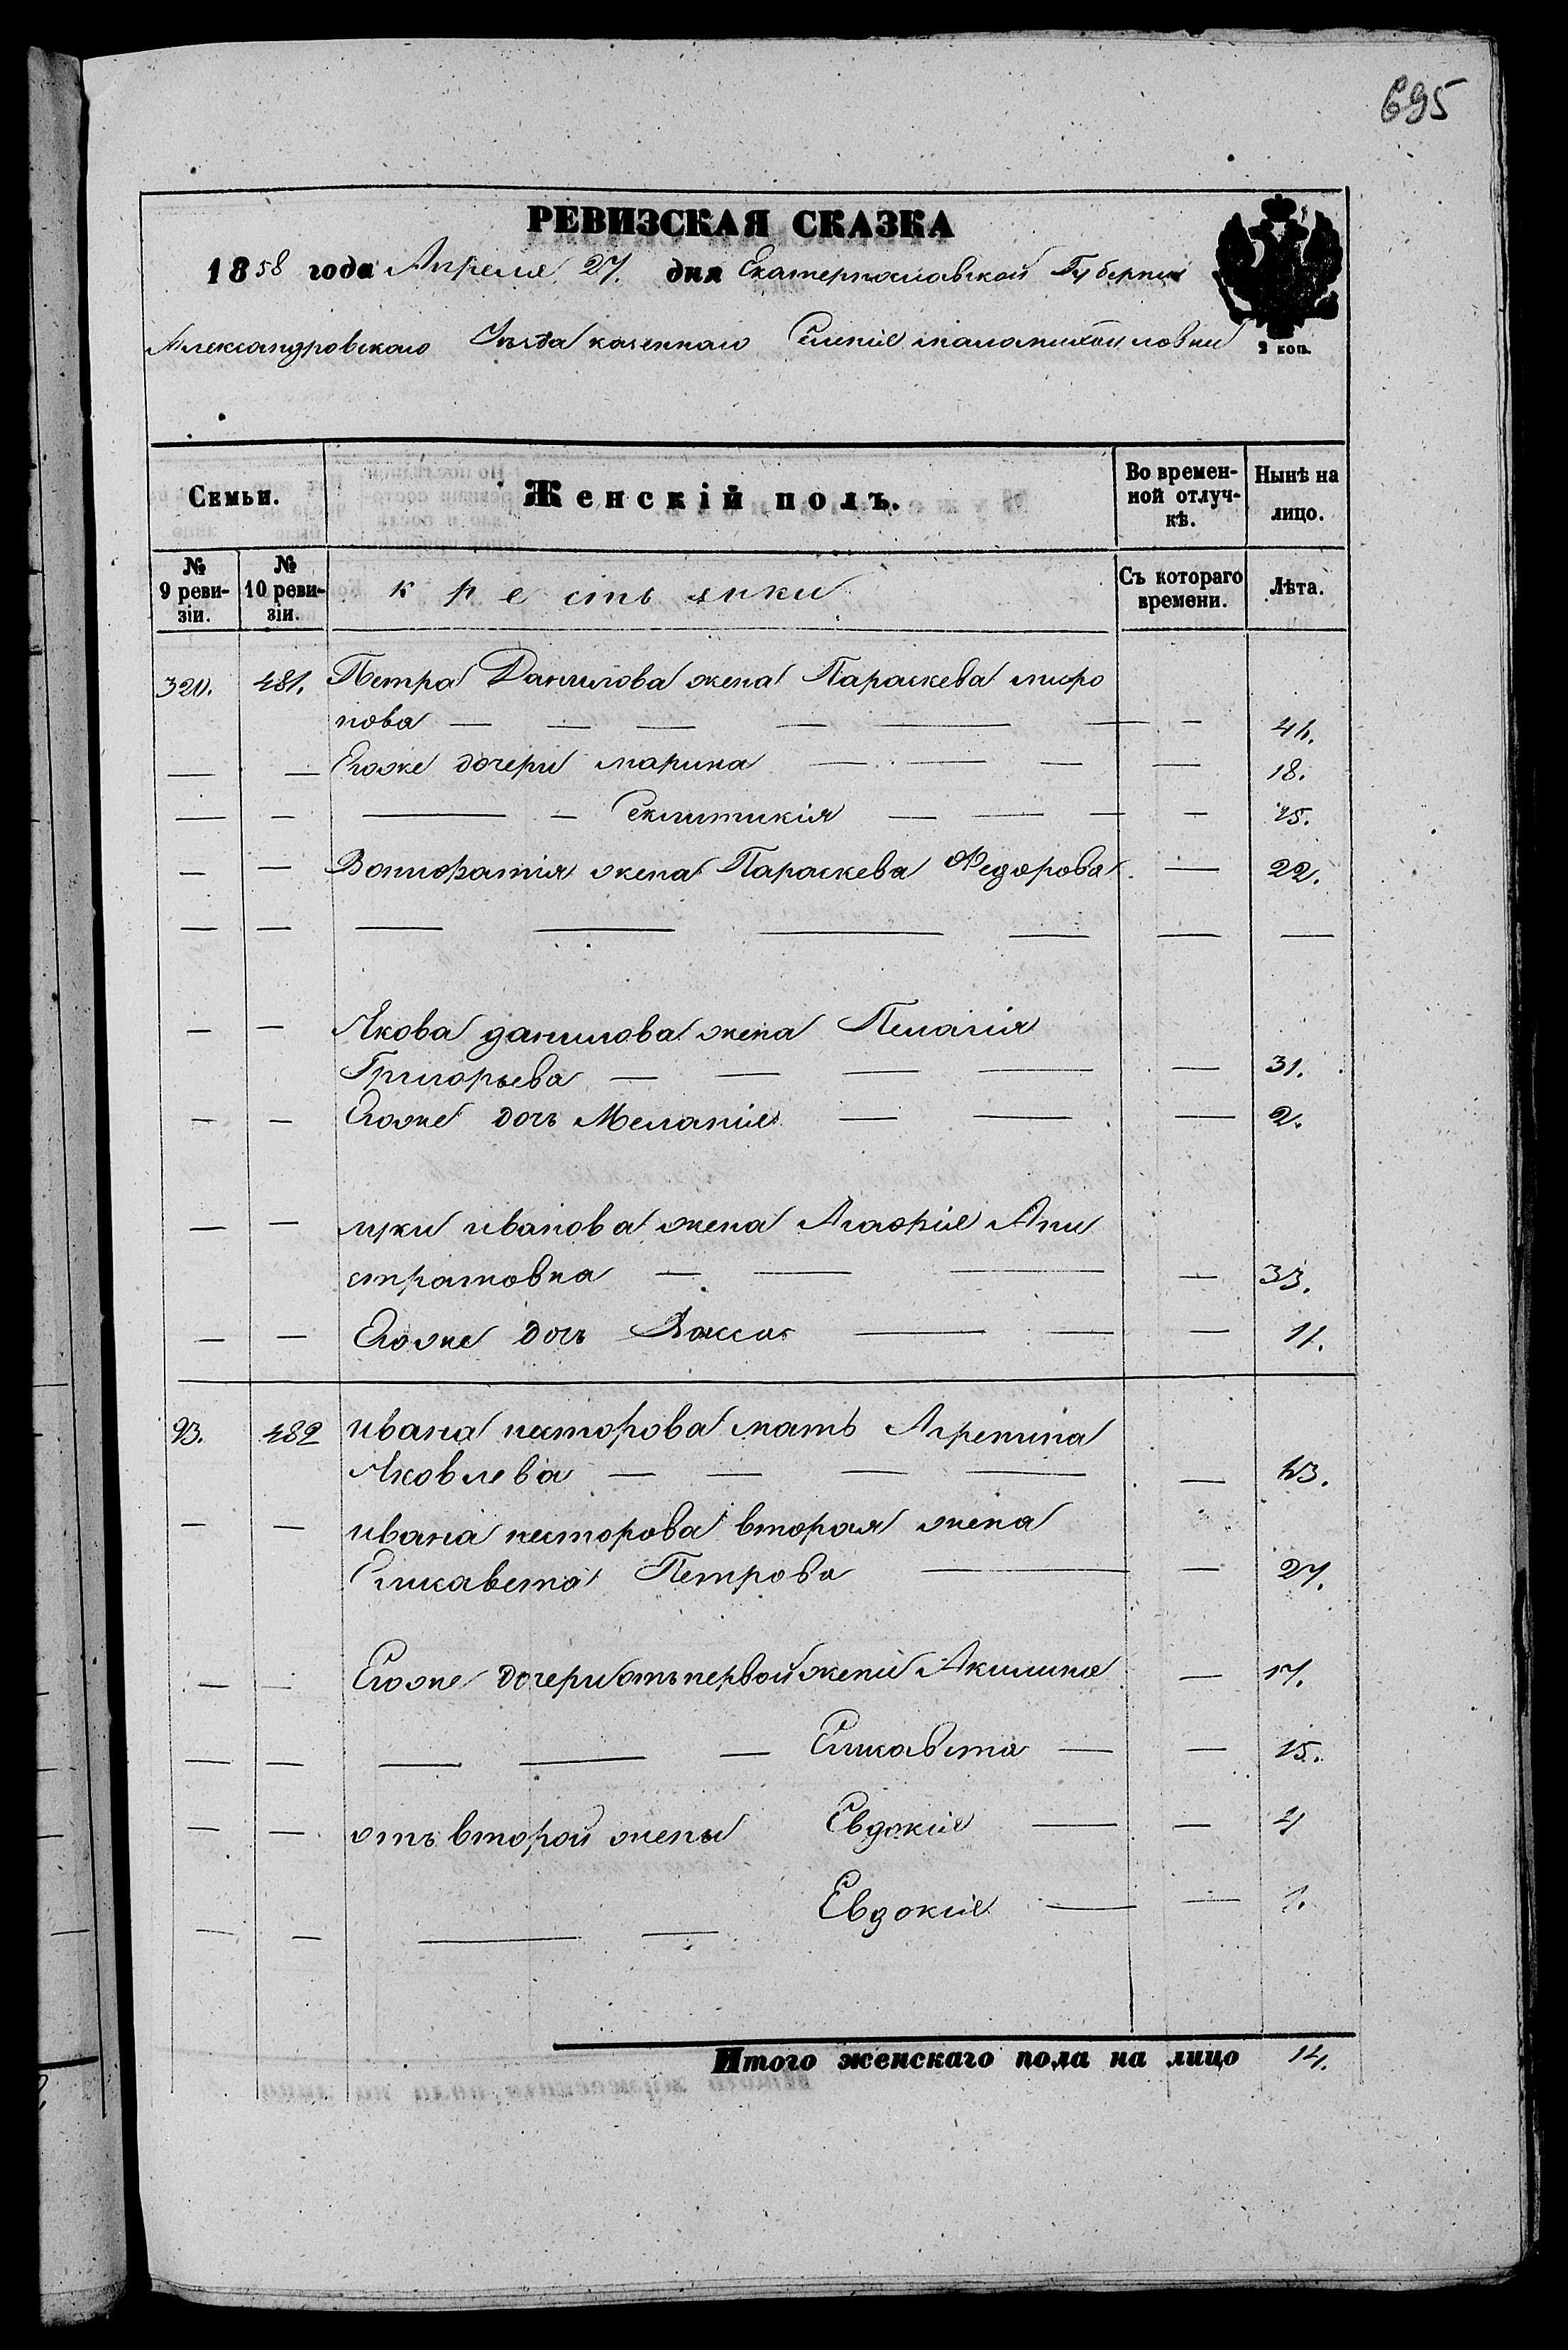 695
РЕВИЗСКАЯ СКАЗКА
1858 года Апреля 27. дня Екатеринославской Губернии
Александровского Уезда казенного Селенія маломихайловки
2 коп.
Семьи. Женскій полъ. Во времен- Нынѣ на
ной отлуч- лицо.
кѣ.
№ № крестьянки Съ котораго Лѣта.
9 реви- 10 реви- времени.
зіи. зіи.
320. 481. Петра Данилова жена Параскева миро
нова — — — — — — — 46.
— — Егоже дочери марина — — — — 18.
— — — — — — — — 15.
— — Вонифатія жена Параскева Федорова — 22.
— — — — — — — —
— — Якова данилова жена Пелагія
Григорьева — — — — — 31.
— — Егоже дочь Меланія — — — 2.
— — луки иванова жена Агафія Али
стратовна — — — — 33.
— — Егоже дочь Васса — — — 11.
93. 482 ивана несторова мать Агрепина
Яковлева — — — — — 63.
— — ивана несторова вторая жена
Елисавета Петрова — — 27.
— — Егоже дочери отъ первой жени Акилина — 17.
— — — — — Елисавета — — 15.
— — отъ второй жены Евдокія — — 4
— — — — Евдокія — — 1.
Итого женскаго пола на лицо 14.